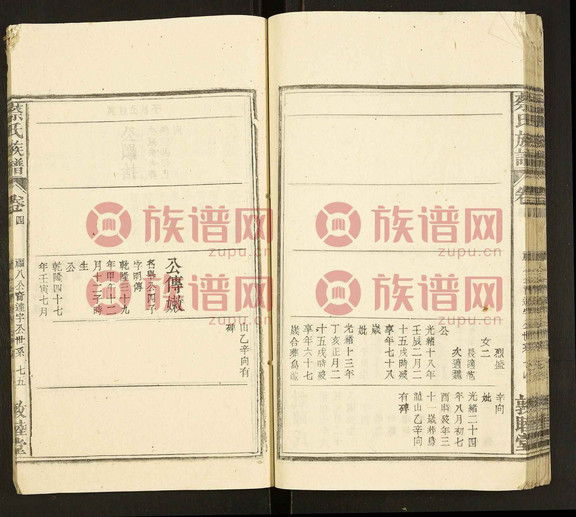 蔡氏族譜
卷
敦睦堂
烈盛
女二
長適常
次適魏
公
光緒十八年
壬辰二月二
十五戌時歿
享年七十八
歲
妣
光緒十三年
丁亥正月二
十五戌時歿
享年六十七
歲合葬烏龜
山乙辛向有
碑
辛向
妣
光緒二十四
年八月初七
酉時歿年三
十一歲葬烏
龜山乙辛向
有碑
公傳嫩
名舉公四子
字明傳
乾隆三十九
年甲午十二
月十三子時
生
公
乾隆四十七
年壬寅七月
蔡氏族譜
卷四
七五
敦睦堂
族谱网
zupu.cn
族谱网
zupu.cn
族谱网
zupu.cn
族谱网
zupu.cn